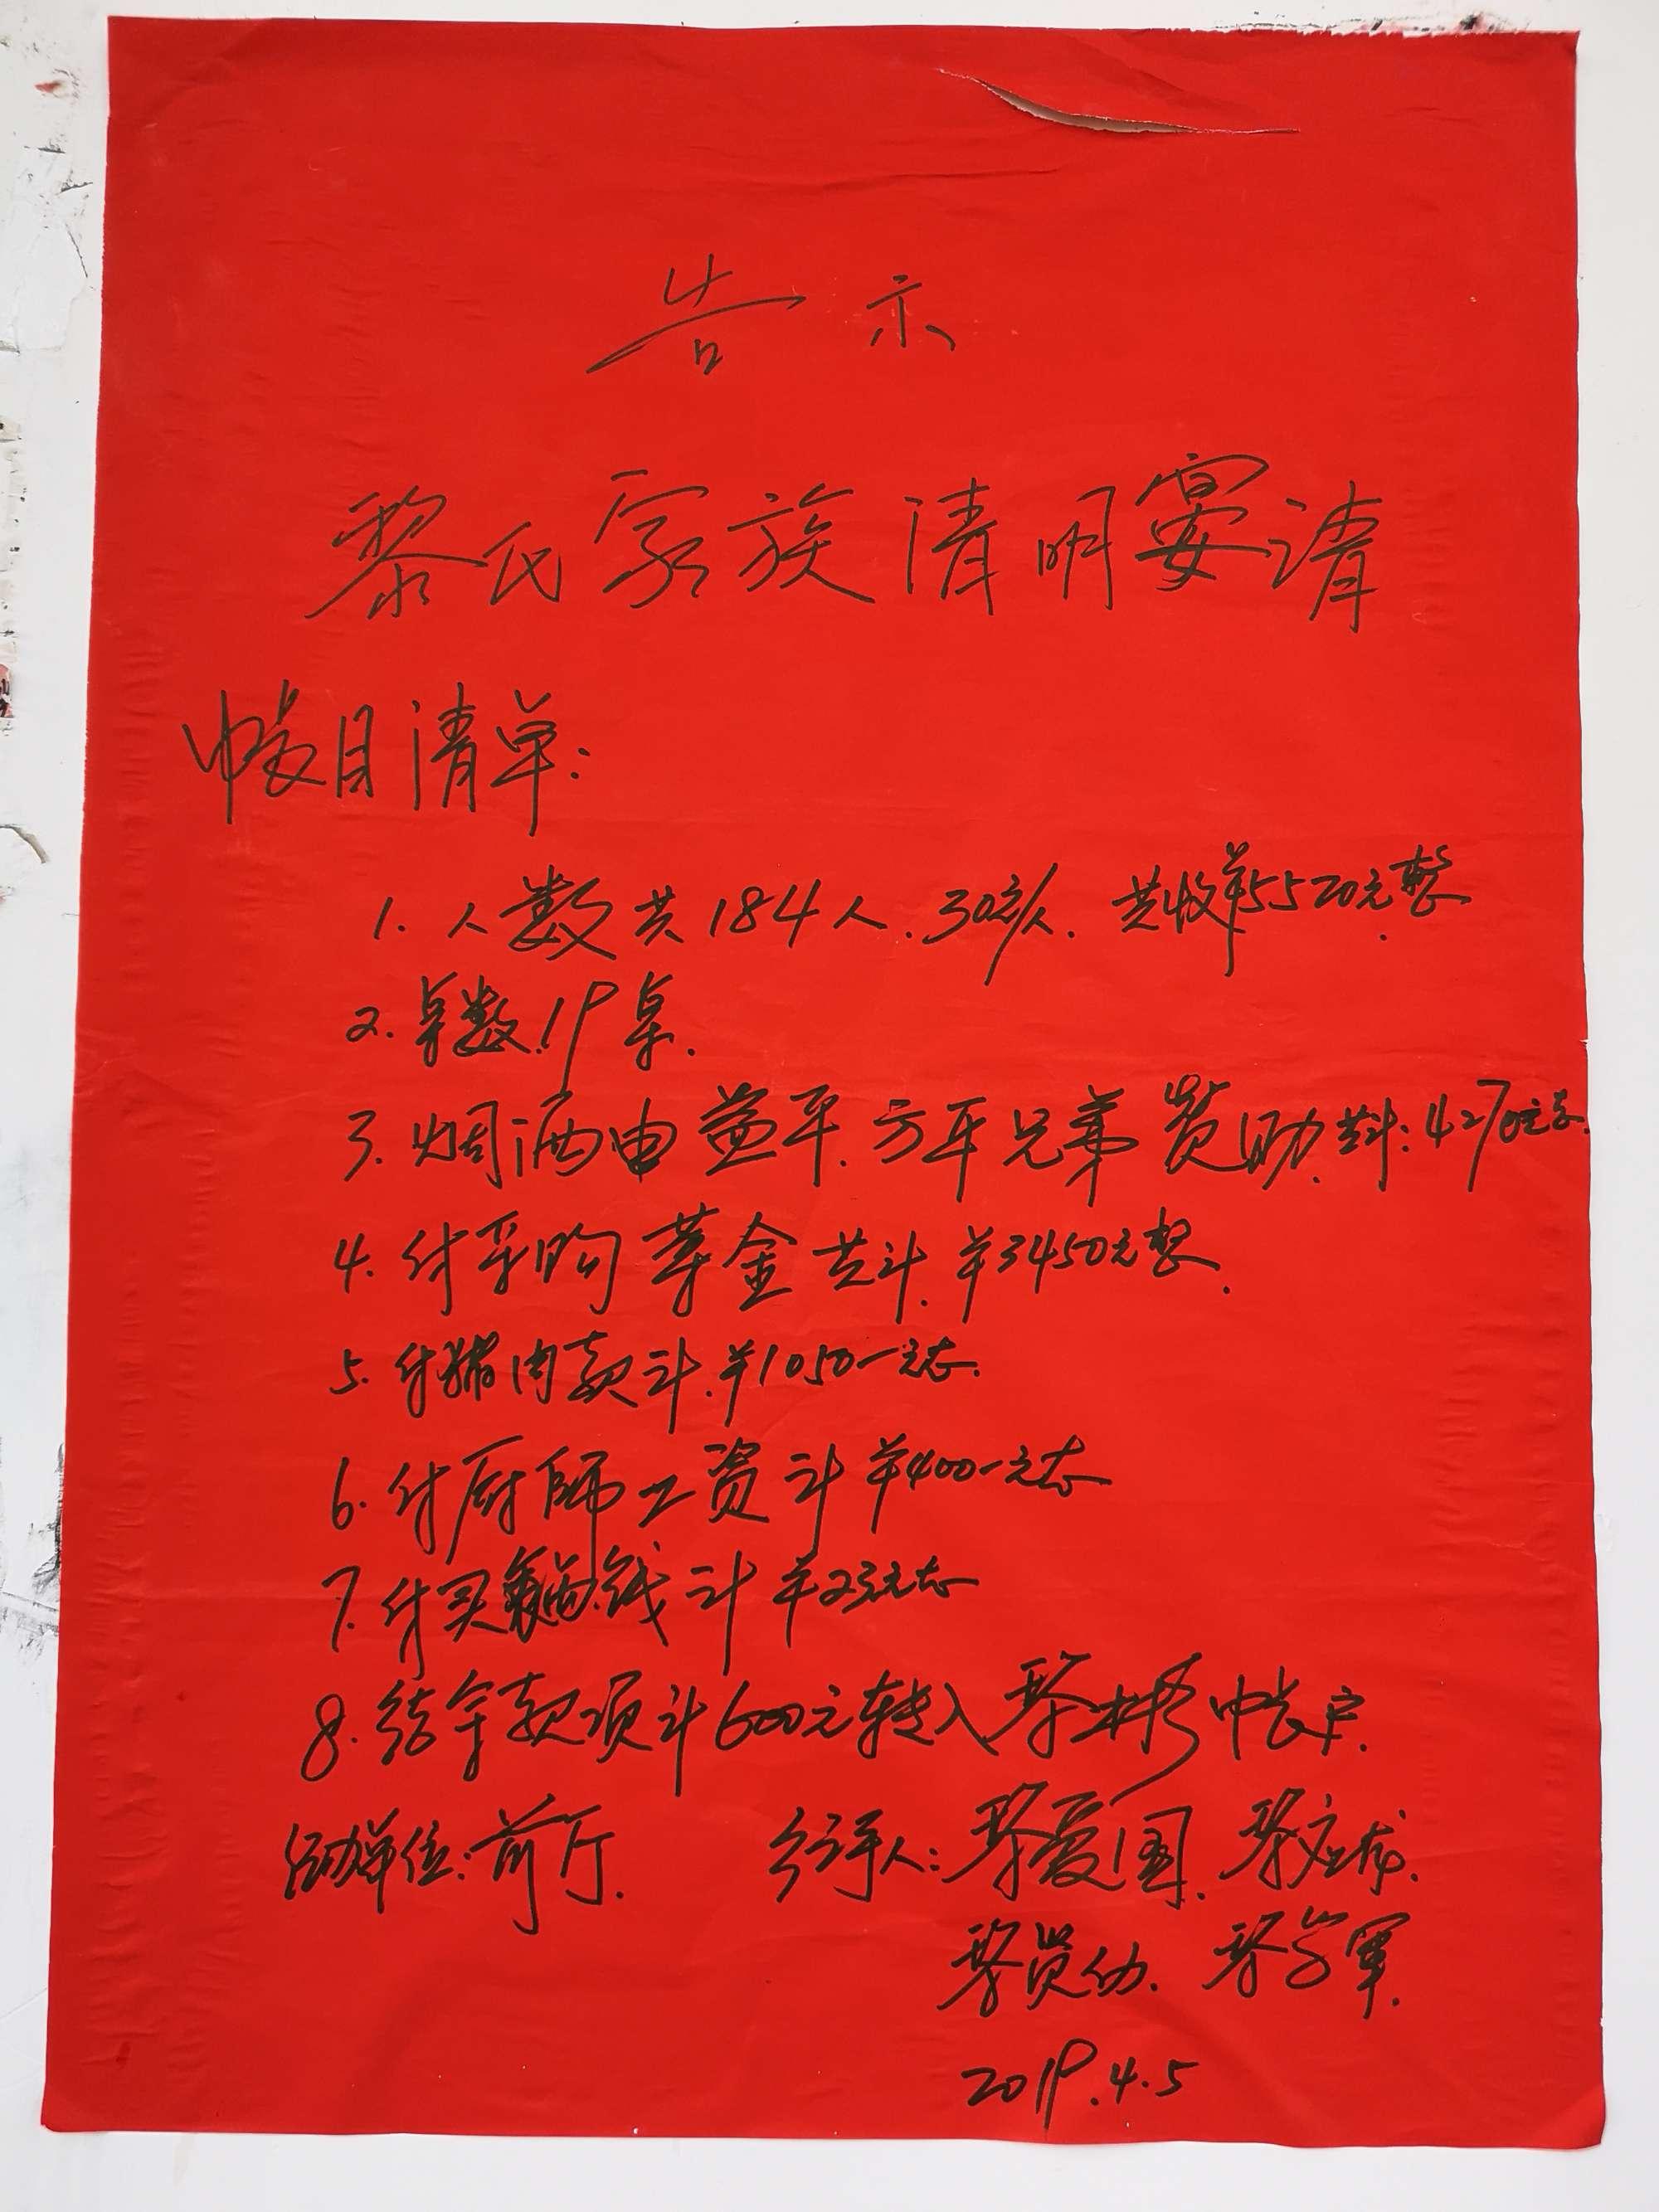 告示
黎氏家族清明宴请
帐目清单:
1. 人数共184人. 30元/人. 共收¥5520元整
2. 桌数.19桌.
3. 烟酒由益平.方平兄弟赞助.共计:4270元正.
4. 付采购李金共计.¥3450元整.
5. 付猪肉款计.¥1050一元正.
6. 付厨师工资计¥400一元正
7. 付买 钱计¥23元正
8. 结余款项计600元转入黎彬帐户.
活动单位:前厅. 经手人:黎爱国. 黎应龙.
黎员仂. 黎家军.
2019.4.5